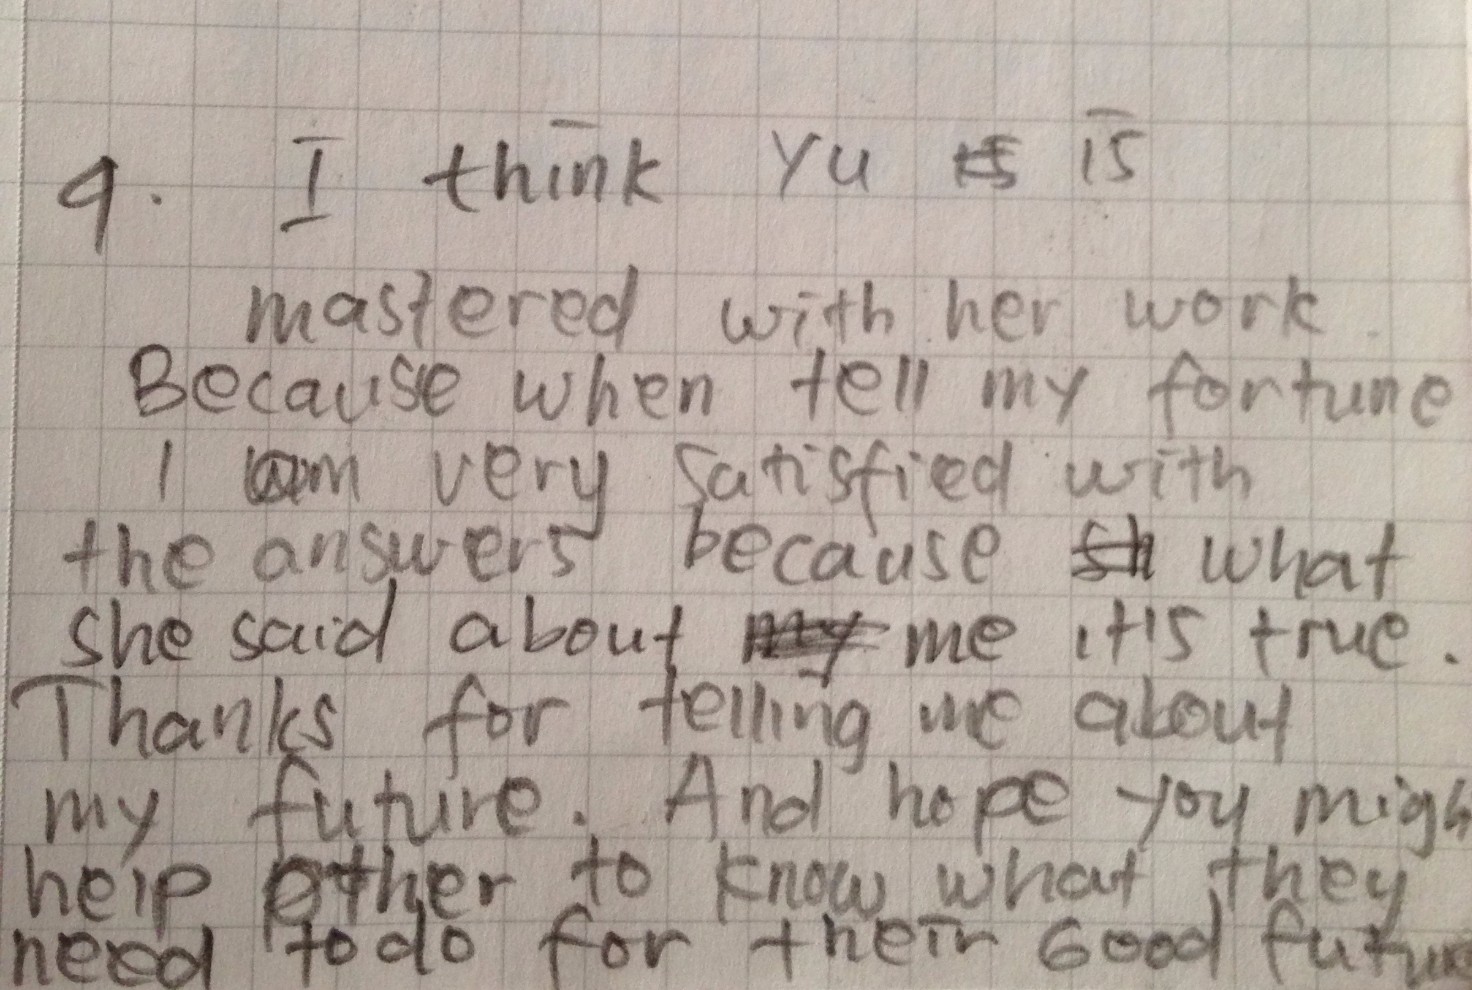 9. I think Yu is is
mastered with her work.
Because when tell my fortune
I am very satisfied with
the answers because sh what
she said about my me it is true.
Thanks for telling me about
my future. And hope you migh
help other to know what they
need to do for their Good future